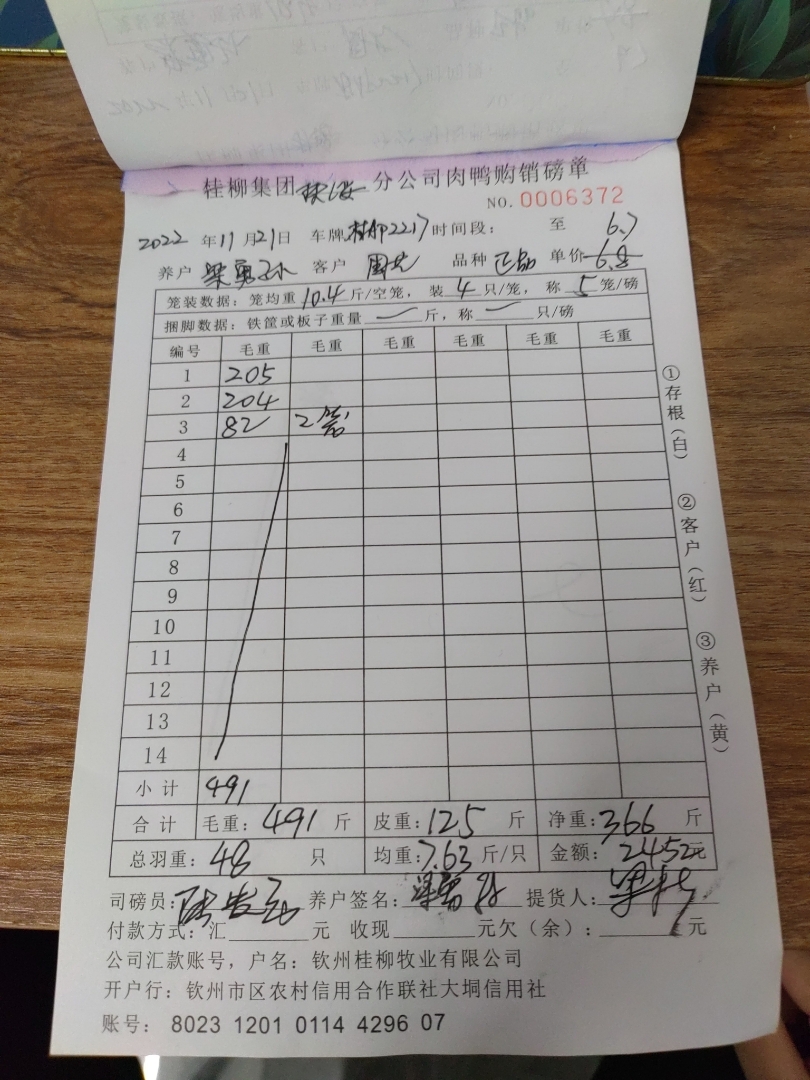 桂柳集团 分公司肉鸭购销磅单
NO. 0006372
2022 年 11 月 21 日 车牌 2217 时间段: 至 6.7
养户 梁勇 客户 周 品种 正品 单价 6.8
笼装数据: 笼均重 10.4 斤/空笼, 装 4 只/笼, 称 5 笼/磅
捆脚数据: 铁筐或板子重量 斤, 称 只/磅
编号 毛重 毛重 毛重 毛重 毛重 毛重
1 205
2 204
3 82 2
4
5
6
7
8
9
10
11
12
13
14
小计 491
合计 毛重: 491 斤 皮重: 125 斤 净重: 366 斤
总羽重: 48 只 均重: 7.63 斤/只 金额: 2452元
司磅员: 养户签名: 提货人:
付款方式: 汇 元 收现 元欠(余): 元
公司汇款账号, 户名: 钦州桂柳牧业有限公司
开户行: 钦州市区农村信用合作联社大垌信用社
账号: 8023 1201 0114 4296 07
①存根(白)
②客户(红)
③养户(黄)